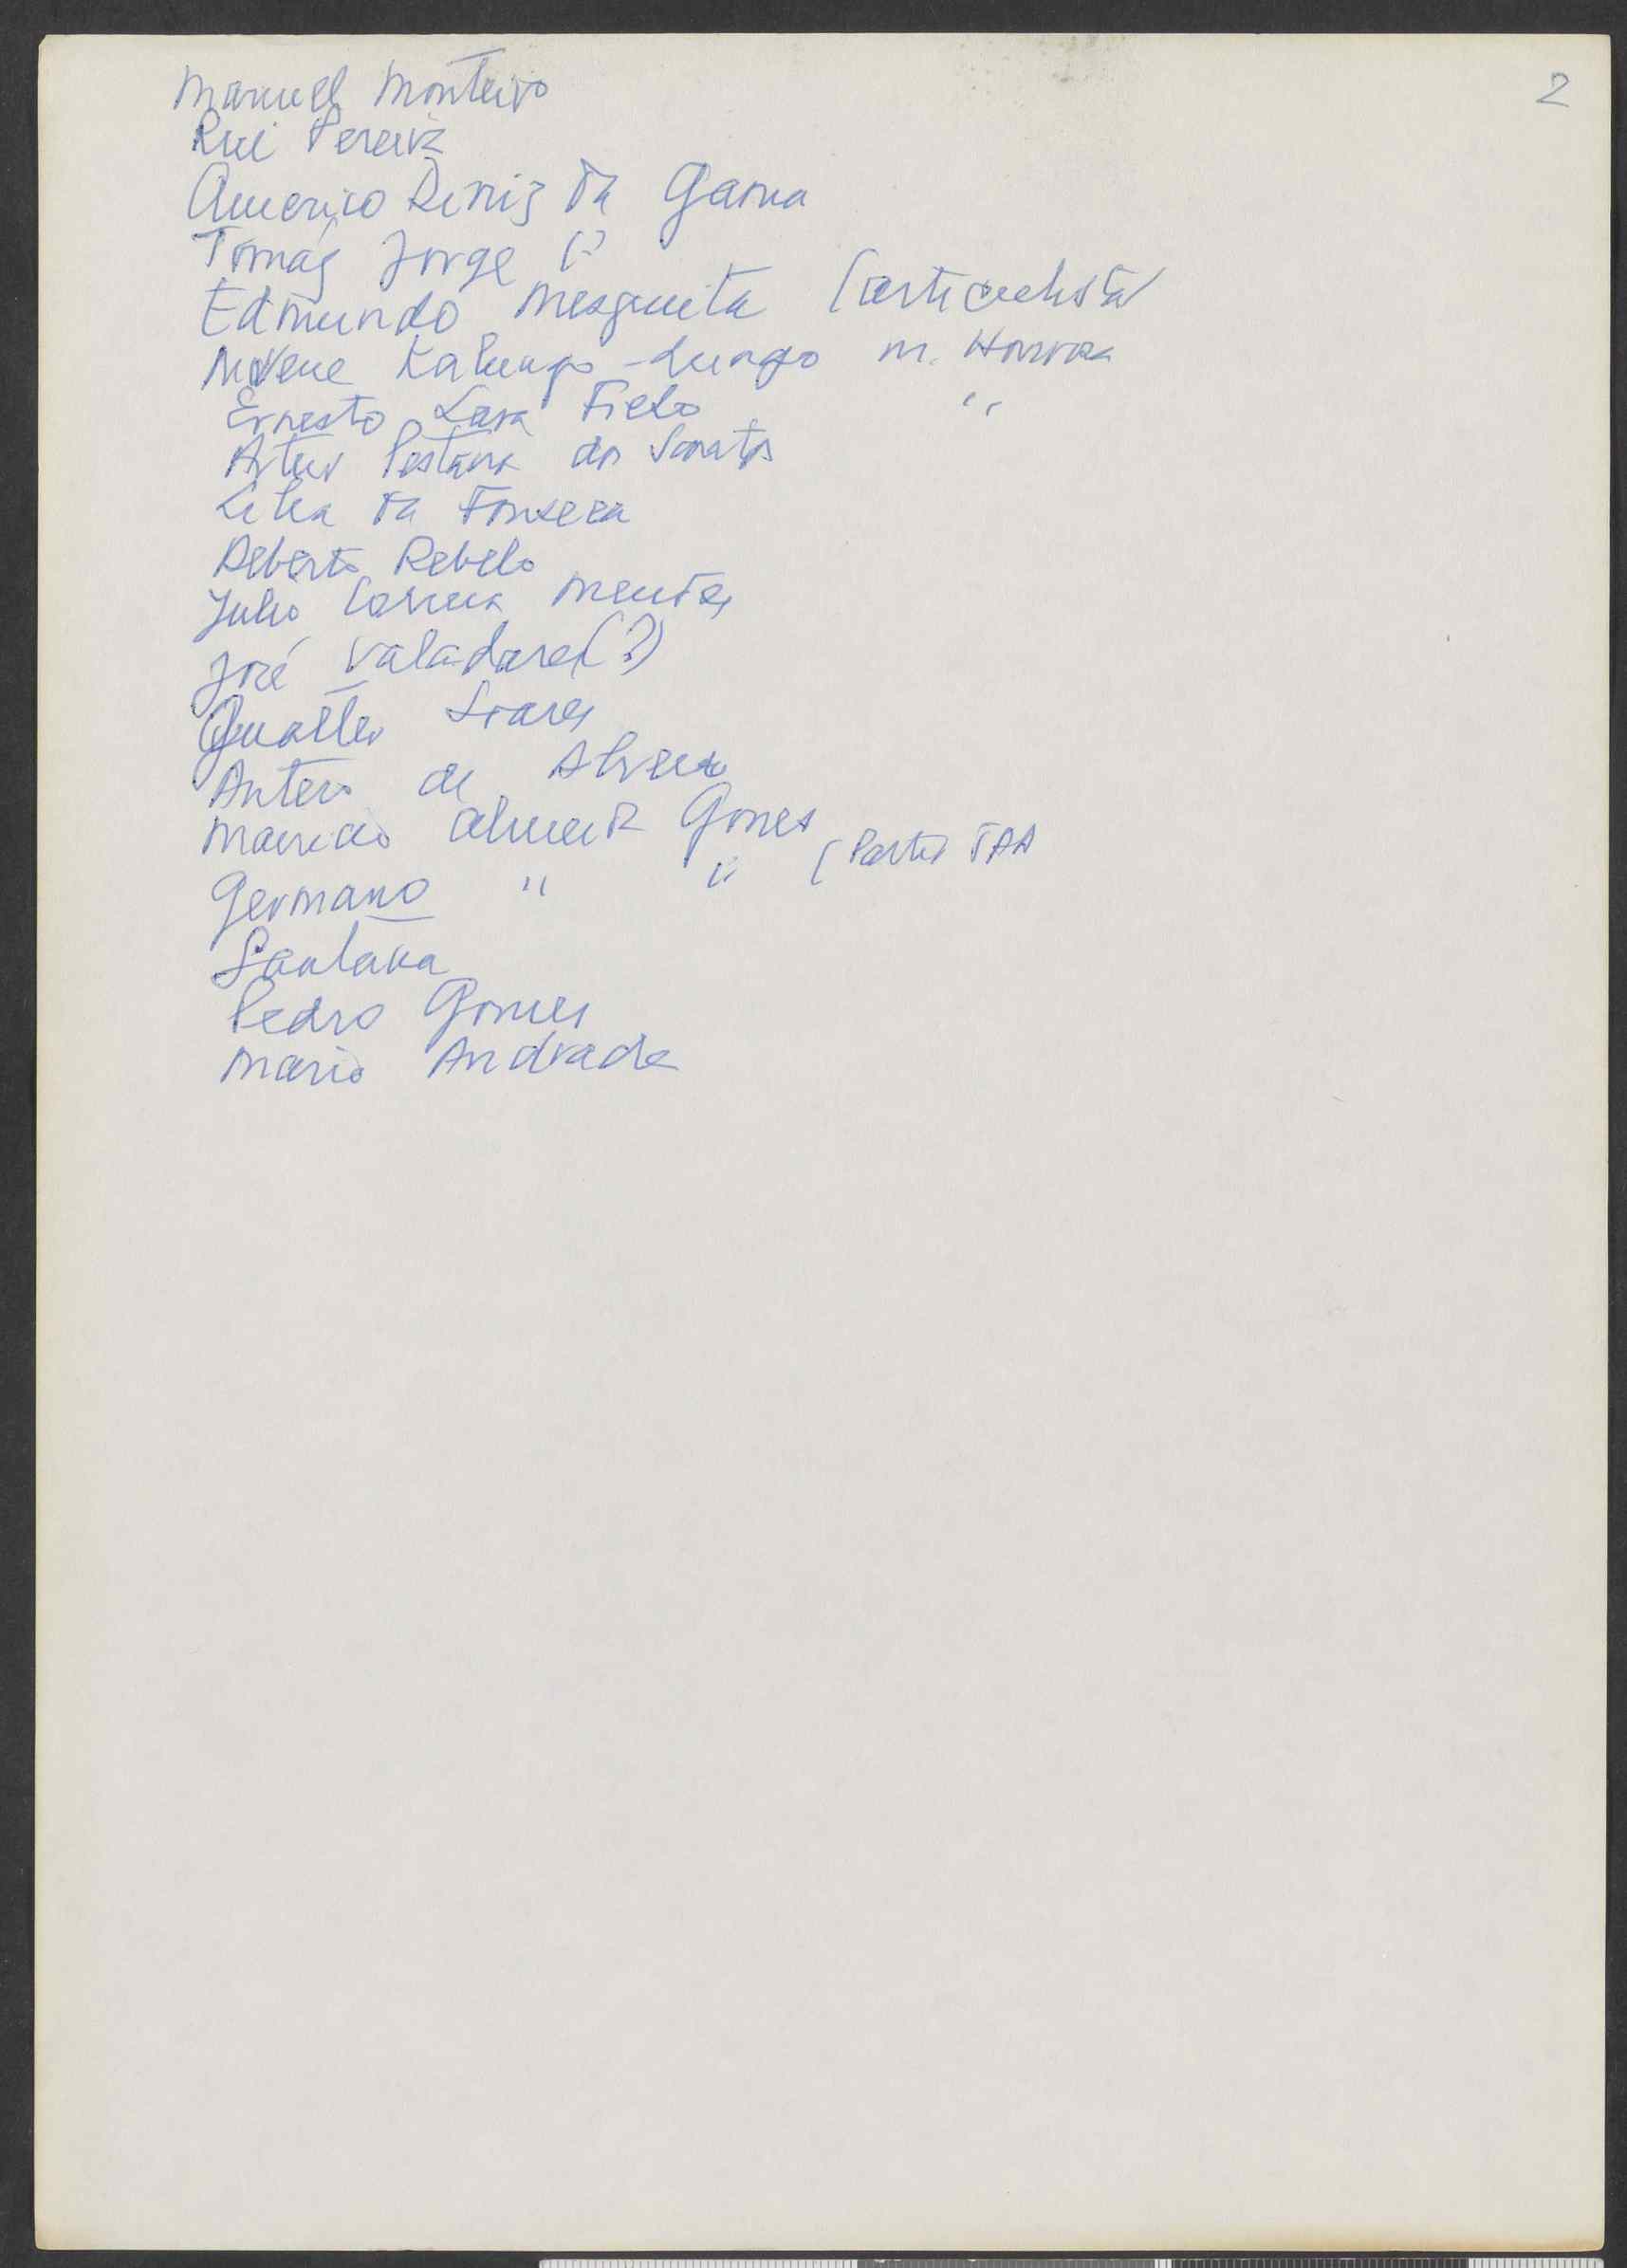 2
Manuel Monteiro
Rui Pereira
Americo Diniz da Gama
Tomás Jorge
Edmundo Mesquita (articulista
Mvene Kalungo-Lungo M. Honroza
Ernesto Lara Filho "
Artur Pestana dos Santos
Lilia da Fonseca
Deberto Rebelo
Julio Correia Mendes
José Valadares (?)
Gualter Soares
Antero de Abreu
Mauricio Almeida Gomes
Germano " " (Partid
Santana
Pedro Gomes
Mario Andrade